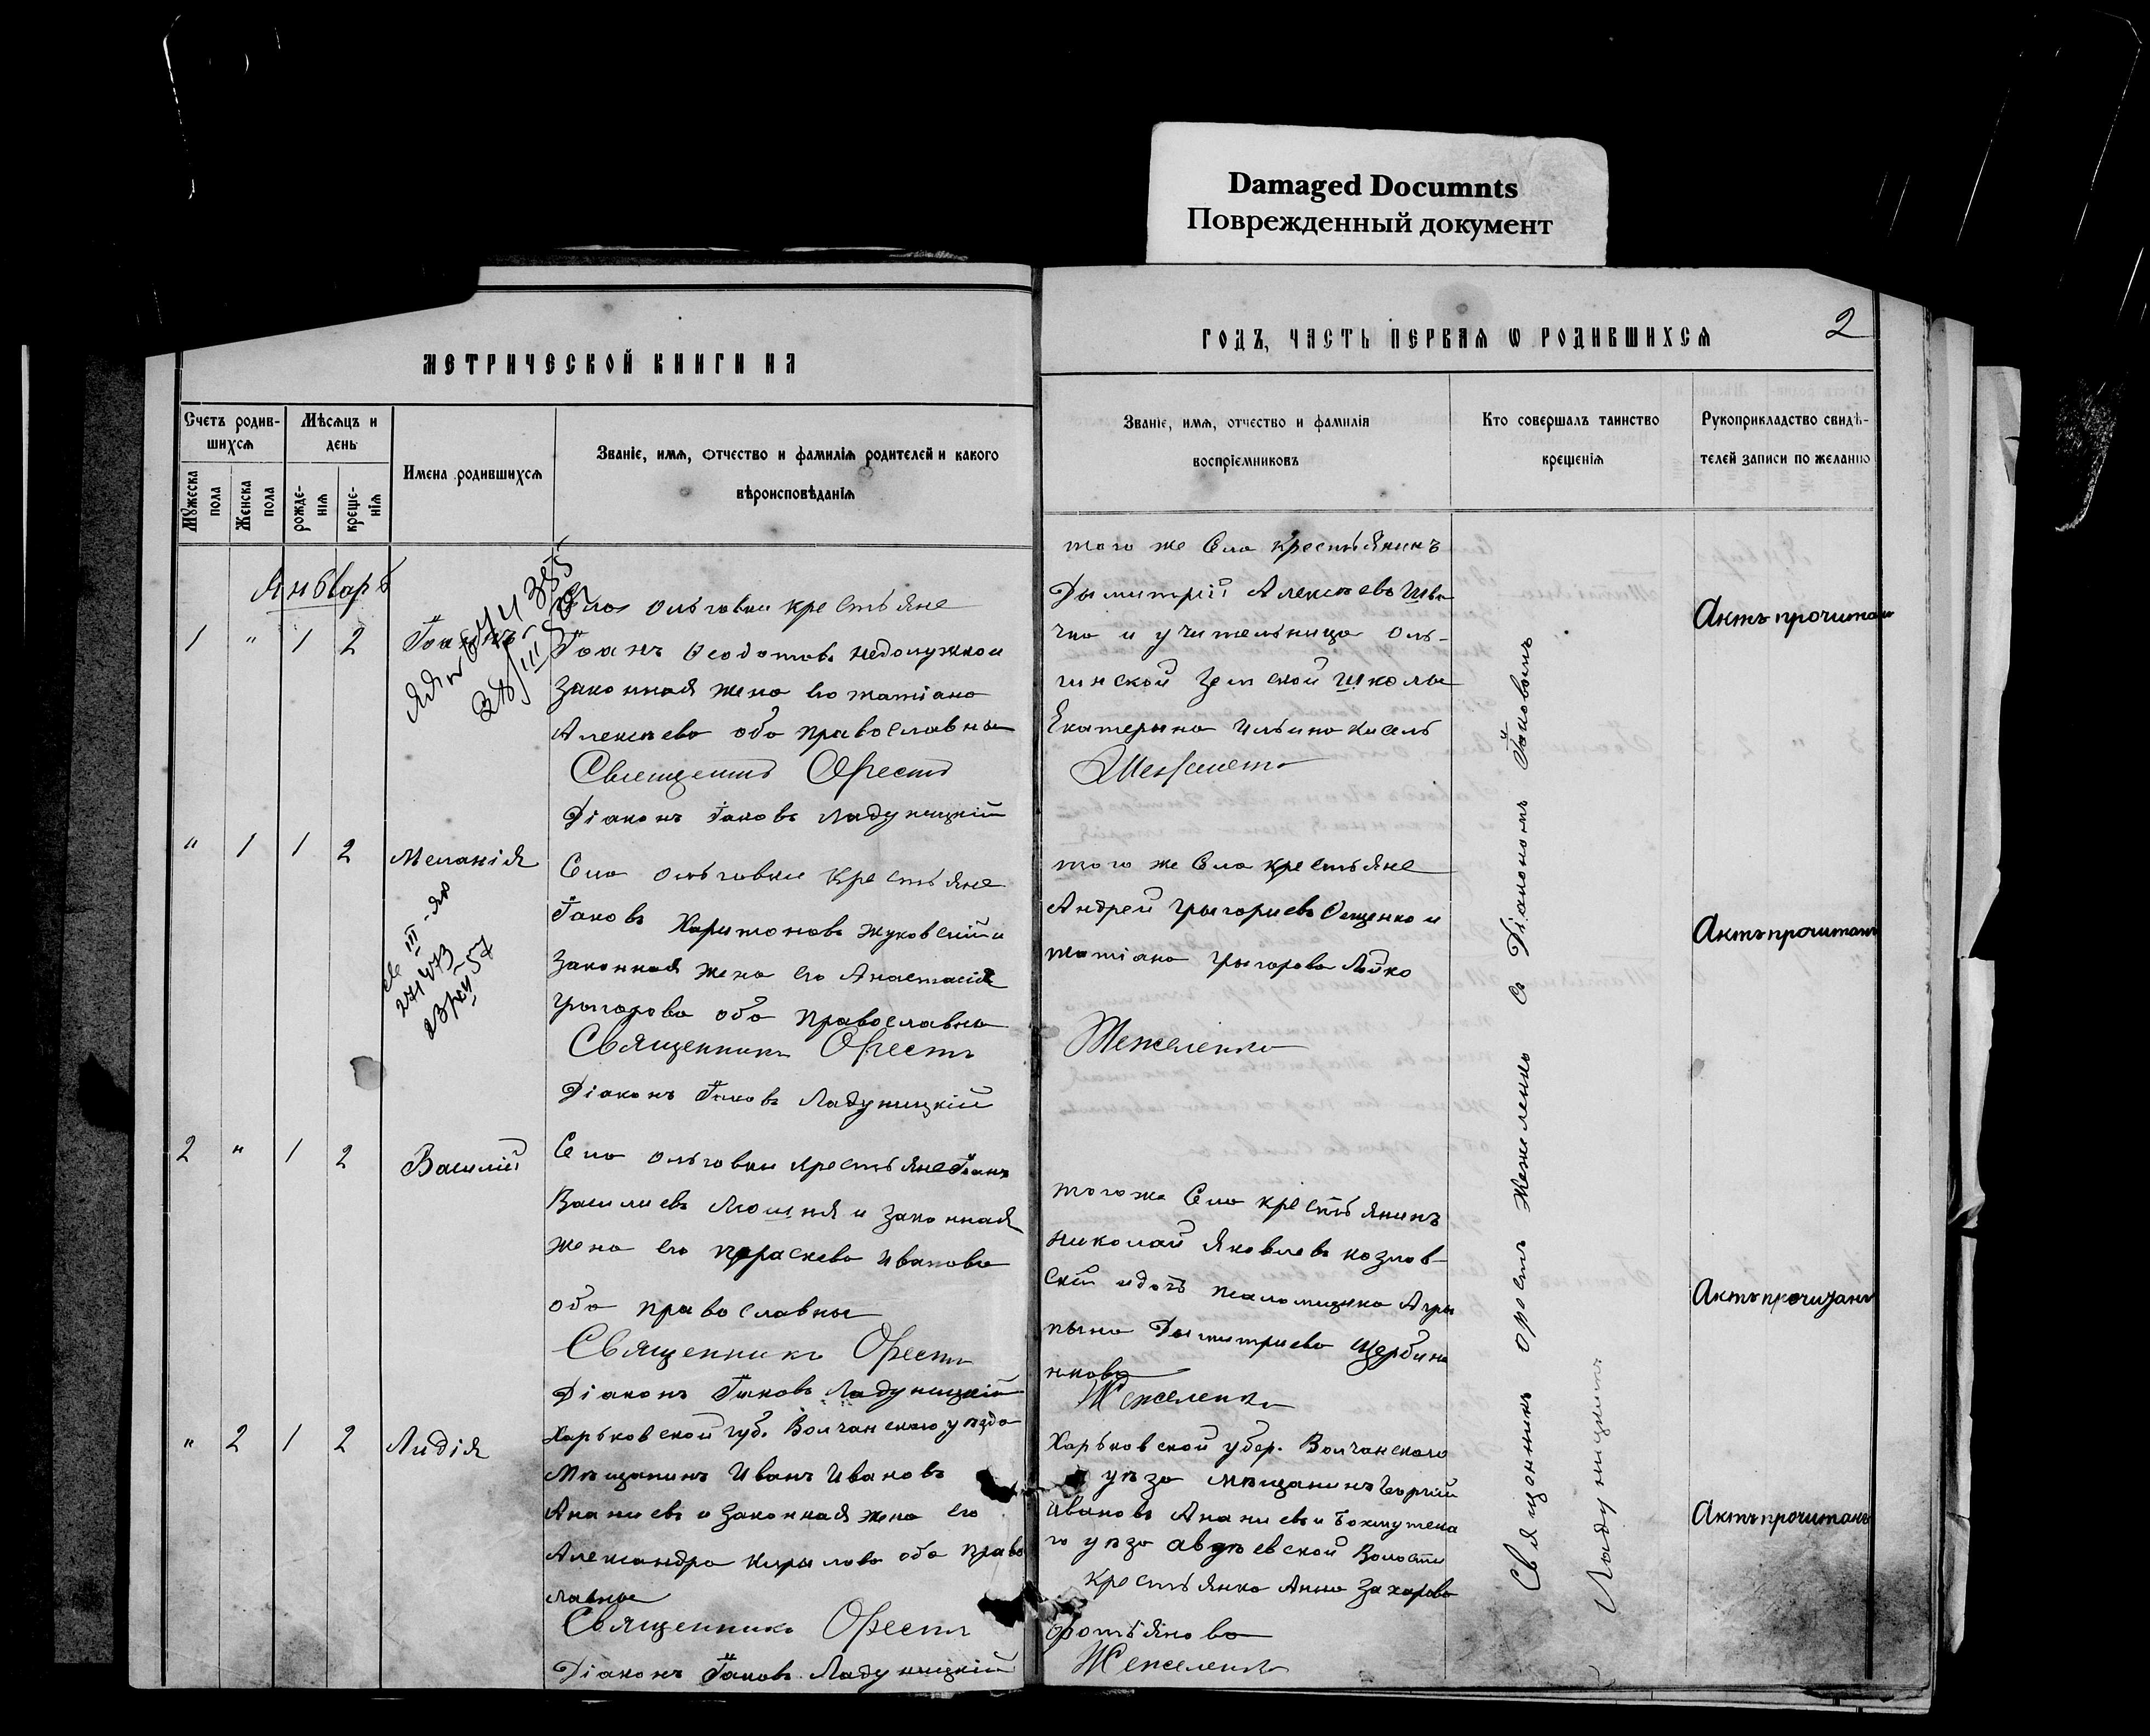 Damaged Documnts
Поврежденный документ
МЕТРИЧЕСКОЙ КНИГИ НА
ГОДЪ, ЧАСТЬ ПЕРВАѦ Ѡ РОДИВШИХСѦ
2
Счетъ родив-
шихсѧ
Мѣсѧцъ и
день
Мужеска
пола
Женска
пола
рожде-
нїѧ
креще-
нїѧ
Имена родившихсѧ
Званїе, имѧ, отчество и фамилїѧ родителей и какого
вѣроисповѣданїѧ
Званїе, имѧ, отчество и фамилїѧ
воспрїемниковъ
Кто совершалъ таинство
крещенїѧ
Рукоприкладство свидѣ-
телей записи по желанїю
Январь
1 " 1 2
Іоаннъ
Села Ольговки крестьяне
Іоанъ Ѳеодотовъ
законная жена его татіана
Алексѣева оба православны
Священникъ Орестъ
Діаконъ Іаковъ Ладуницкій
того же Села крестьянинъ
Дымитрій Алексѣевъ
и учительница Оль-
гинской Земской школы
Екатерына Ильина Кисель
Жежеленко
Актъ прочитанъ
" 1 1 2
Меланія
Села Ольговки крестьяне
Іаковъ Харитоновъ Жуковскій и
законная жена его Анастасія
Григорова оба православны
Священникъ Орестъ
Діаконъ Іаковъ Ладуницкій
того же Села крестьяне
Андрей Грыгориевъ Ощенко и
татіана Грыгорова Лойко
Жежеленко
Актъ прочитанъ
2 " 1 2
Василій
Села Ольговки крестьяне Іоанъ
Василиевъ Люшня и законная
жена его Параскева Иванова
оба православны
Священникъ Орестъ
Діаконъ Іаковъ Ладуницкій
того же Села крестьянинъ
Николай Яковлевъ Козлов-
скій и дочь псаломщика Агры
пына Дымитриева Щербина
нкова
Жежеленко
Актъ прочитанъ
" 2 1 2
Лидія
Харьковской губ. Волчанскаго уѣзда
Мѣщанинъ Иванъ Ивановъ
Ананиевъ и законная жена его
Александра Кирылова оба право
славны
Священникъ Орестъ
Діаконъ Іаковъ Ладуницкій
Харьковской губер. Волчанскаго
уѣзда мѣщанинъ Георгий
Ивановъ Ананиевъ и Бахмутска
го уѣзда Авдѣевской Волости
крестьянка Анна Захарова
Жежеленко
Актъ прочитанъ
Священникъ Орестъ Жежеленко съ Діакономъ Іаковомъ
Ладуницкимъ